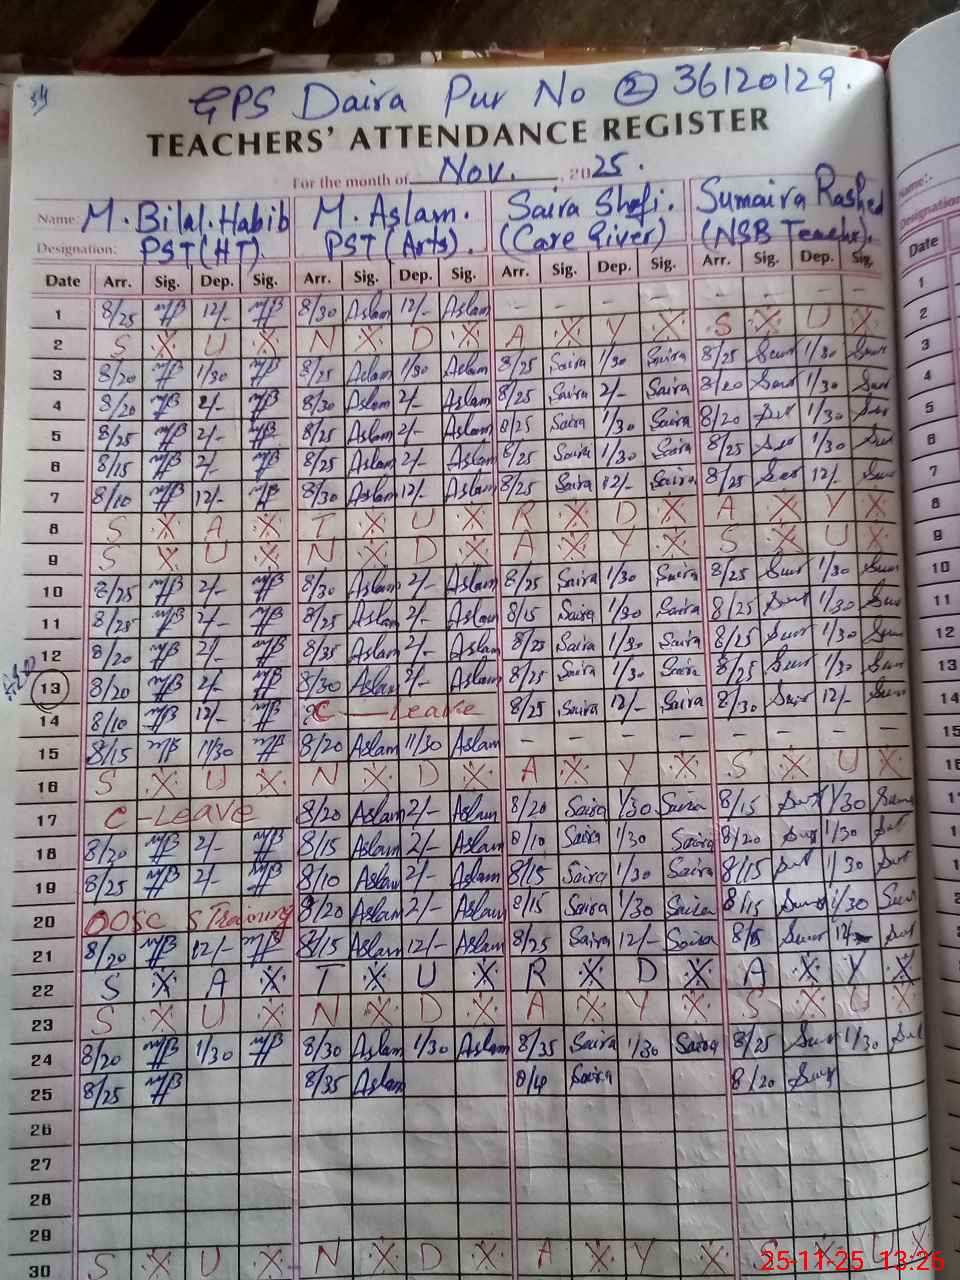 GPS Daira Pur No ② 36120129.
TEACHERS' ATTENDANCE REGISTER
For the month of Nov. , 2025.
Name: M. Bilal. Habib M. Aslam. Saira Shafi. Sumaira Rashed
Designation: PST (HT). PST (Arts). (Care Giver) (NSB Teacher).
Date Arr. Sig. Dep. Sig. Arr. Sig. Dep. Sig. Arr. Sig. Dep. Sig. Arr. Sig. Dep. Sig.
1 8/25 12/- 8/30 Aslam 12/- Aslam - - - - - - - -
2 S X U X N X D X A X Y X S X U X
3 8/20 1/30 8/25 Aslam 1/30 Aslam 8/25 Saira 1/30 Saira 8/25 1/30
4 8/20 2/- 8/30 Aslam 2/- Aslam 8/25 Saira 2/- Saira 8/20 1/30
5 8/25 2/- 8/25 Aslam 2/- Aslam 8/25 Saira 1/30 Saira 8/20 1/30
6 8/15 2/- 8/25 Aslam 2/- Aslam 8/25 Saira 1/30 Saira 8/25 1/30
7 8/10 12/- 8/30 Aslam 12/- Aslam 8/25 Saira 12/- Saira 8/25 12/-
8 S X A X T X U X R X D X A X Y X
9 S X U X N X D X A X Y X S X U X
10 8/25 2/- 8/30 Aslam 2/- Aslam 8/25 Saira 1/30 Saira 8/25 1/30
11 8/25 2/- 8/25 Aslam 2/- Aslam 8/15 Saira 1/30 Saira 8/25 1/30
12 8/20 2/- 8/35 Aslam 2/- Aslam 8/25 Saira 1/30 Saira 8/25 1/30
13 8/20 2/- 8/30 Aslam 2/- Aslam 8/25 Saira 1/30 Saira 8/25 1/30
14 8/10 12/- C - Leave 8/25 Saira 12/- Saira 8/30 12/-
15 8/15 11/30 8/20 Aslam 11/30 Aslam - - - - - - - -
16 S X U X N X D X A X Y X S X U X
17 C - Leave 8/20 Aslam 2/- Aslam 8/20 Saira 1/30 Saira 8/15 1/30
18 8/20 2/- 8/15 Aslam 2/- Aslam 8/10 Saira 1/30 Saira 8/20 1/30
19 8/25 2/- 8/10 Aslam 2/- Aslam 8/15 Saira 1/30 Saira 8/15 1/30
20 OOSC S Training 8/20 Aslam 2/- Aslam 8/15 Saira 1/30 Saira 8/15 1/30
21 8/20 12/- 8/15 Aslam 12/- Aslam 8/25 Saira 12/- Saira 8/15 12/-
22 S X A X T X U X R X D X A X Y X
23 S X U X N X D X A X Y X S X U X
24 8/20 1/30 8/30 Aslam 1/30 Aslam 8/35 Saira 1/30 Saira 8/25 1/30
25 8/25 8/35 Aslam Saira 8/20
26
27
28
29
30 S X U X N X D X A X Y X S X U X
Name:-
Designation
Date
1
2
3
4
5
6
7
8
9
10
11
12
13
14
15
16
25-11-25 13:26